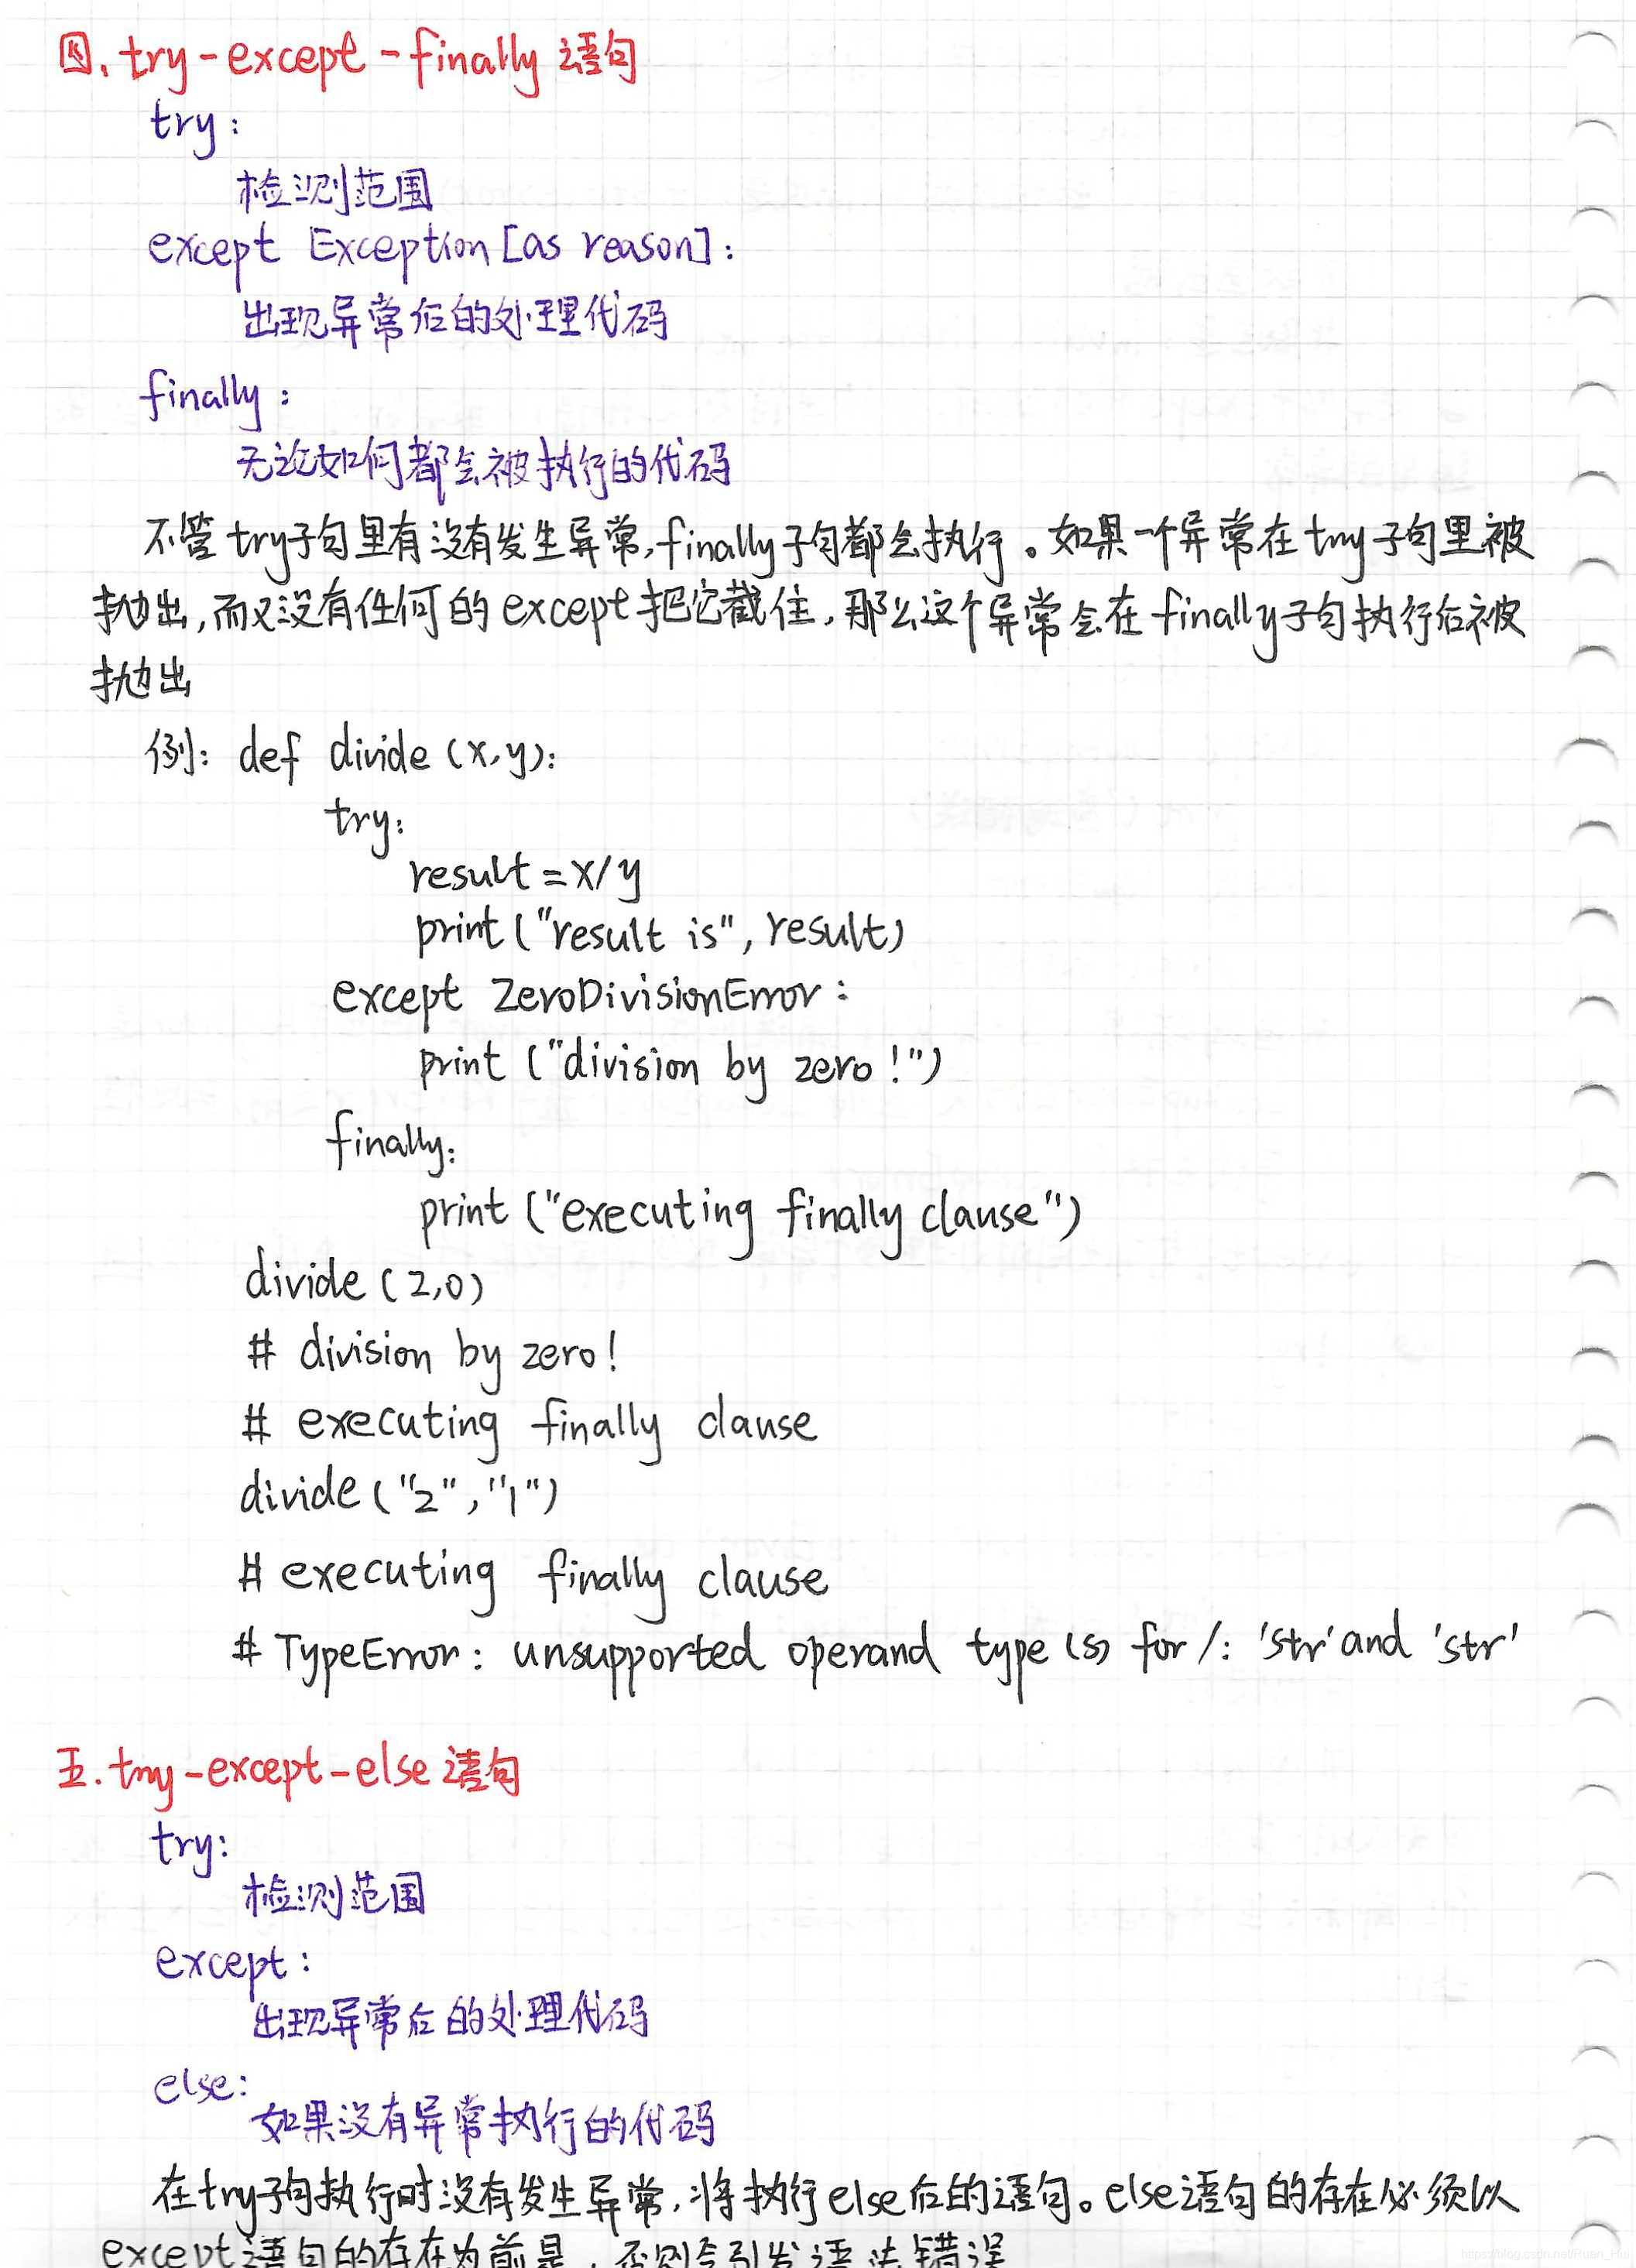 四. try-except-finally 语句
try:
检测范围
except Exception [as reason]:
出现异常后的处理代码
finally:
无论如何都会被执行的代码
不管try子句里有没有发生异常,finally子句都会执行。如果一个异常在try子句里被
抛出,而又没有任何的except把它截住,那么这个异常会在finally子句执行后被
抛出
例: def divide (x,y):
try:
result = x/y
print ("result is", result)
except ZeroDivisionError:
print ("division by zero!")
finally:
print ("executing finally clause")
divide (2,0)
# division by zero!
# executing finally clause
divide ("2","1")
# executing finally clause
# TypeError: unsupported operand type(s) for /: 'str' and 'str'
五. try-except-else 语句
try:
检测范围
except:
出现异常后的处理代码
else:
如果没有异常执行的代码
在try子句执行时没有发生异常,将执行else后的语句。else语句的存在必须以
except语句的存在为前提,否则会引发语法错误
https://blog.csdn.net/Ruan_Hui